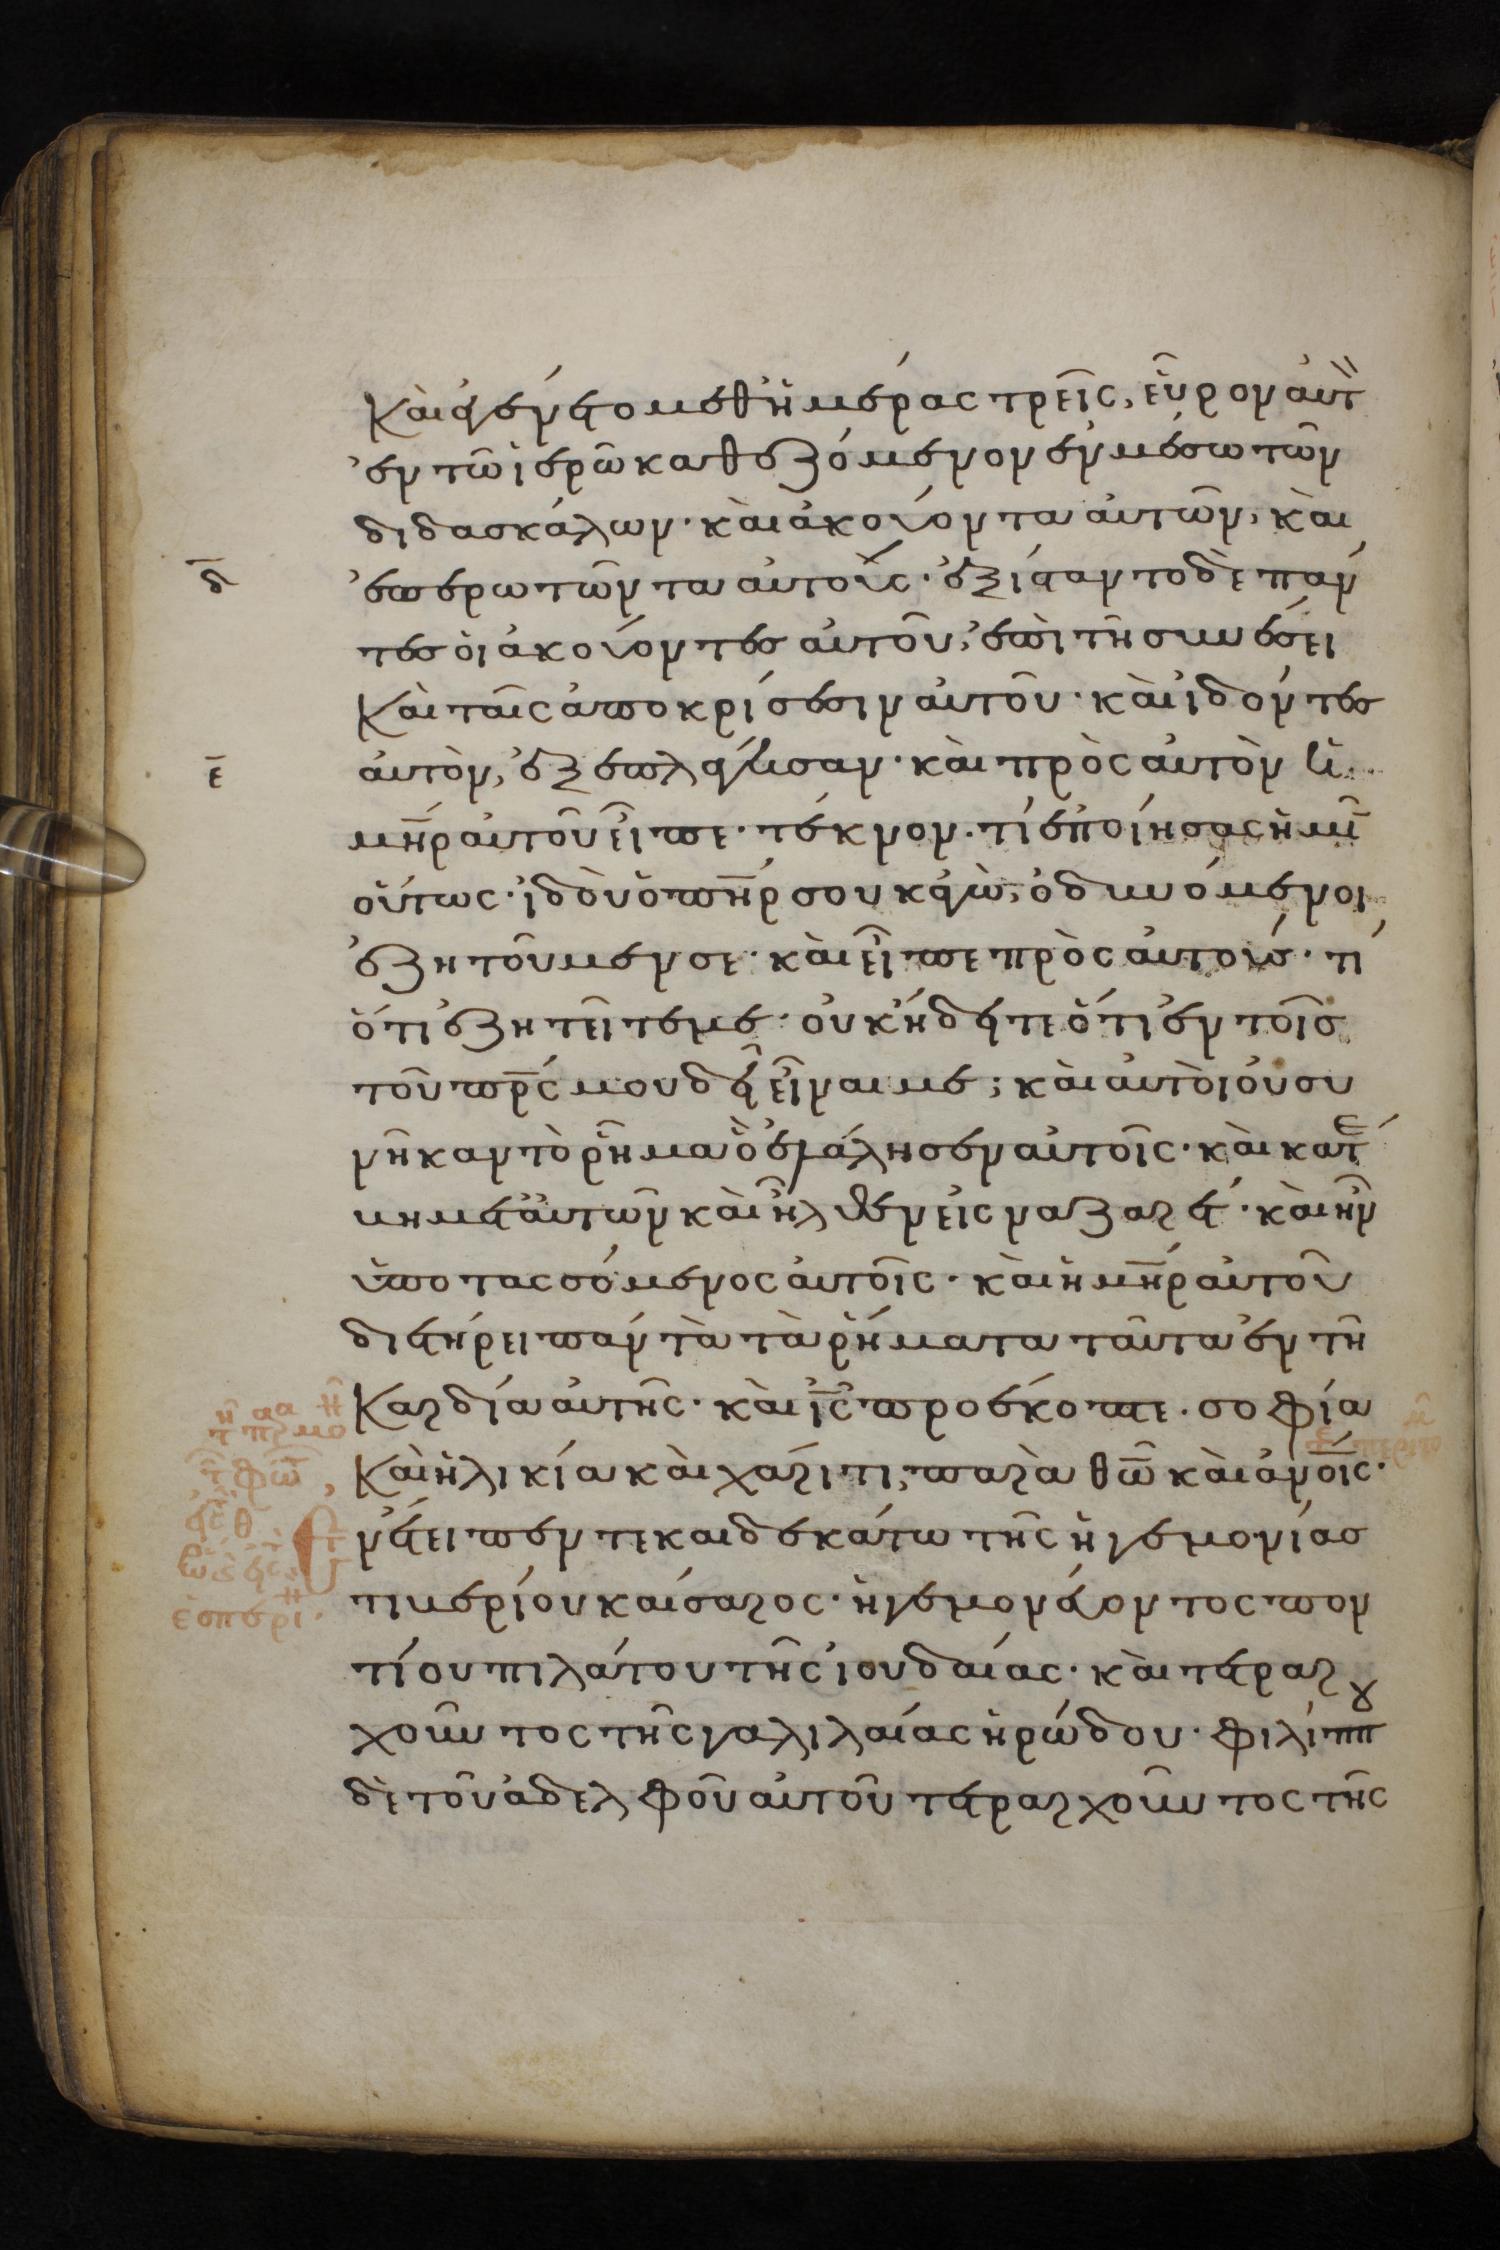 καὶ ἐγένετο μεθ ἡμέρας τρεῖς, εὗρον αὐτ
ἐν τῶ ἱερῶ καθεζόμενον ἐν μέσω τῶν
διδασκάλων· καὶ ἀκούοντα αὐτῶν, καὶ
δ̅ ἐπερωτῶντα αὐτούς· ἐξίσταντο δὲ πάν
τες οἱ ἀκούοντες αὐτοῦ, ἐπὶ τῆ συνέσει
καὶ ταῖς ἀποκρίσεσιν αὐτοῦ· καὶ ἰδόντες
ε̅ αὐτὸν, ἐξεπλάγησαν· καὶ πρὸς αὐτὸν ἡ
μη̅ρ αὐτοῦ εἶπε· τέκνον· τί ἐποίησας ἡμῖ
οὕτως· ἰδοὺ ὁ πη̅ρ σου κἀγὼ, ὀδυνόμενοι
ἐζητοῦμεν σε· καὶ εἶπε πρὸς αὐτούς· τί
ὅτι ἐζητεῖτέ με· οὐκ ἤδητε ὅτι ἐν τοῖς
τοῦ πρ̅ς μου δεῖ εἶναι με; καὶ αὐτοὶ οὐ συ
νῆκαν τὸ ῥῆμα ὃ ἐλάλησεν αὐτοῖς· καὶ κατέ
βη μετ αὐτῶν καὶ ἦλθεν εἰς ναζαρέτ· καὶ ἦν
ὑποτασσόμενος αὐτοῖς· καὶ ἡ μη̅ρ αὐτοῦ
διετήρει πάντὰ τὰ ῥήματα ταῦτα ἐν τῆ
καρδία αὐτῆς· καὶ ι̅ς προέκοπτε· σοφία
καὶ ἡλικία καὶ χάριτι, παρὰ θω̅ καὶ ἀνοι̅ς·
Ἐν ἔτει πεντεκαιδεκάτω τῆς ἡγεμονίας
τιβερίου καίσαρος· ἡγεμονεύοντος πον
τίου πιλάτου τῆς ἰουδαίας· καὶ τετραρ
χοῦντος τῆς γαλιλαίας ἡρώδου· φιλίππου
δὲ τοῦ ἀδελφοῦ αὐτοῦ τετραρχοῦντος τῆς